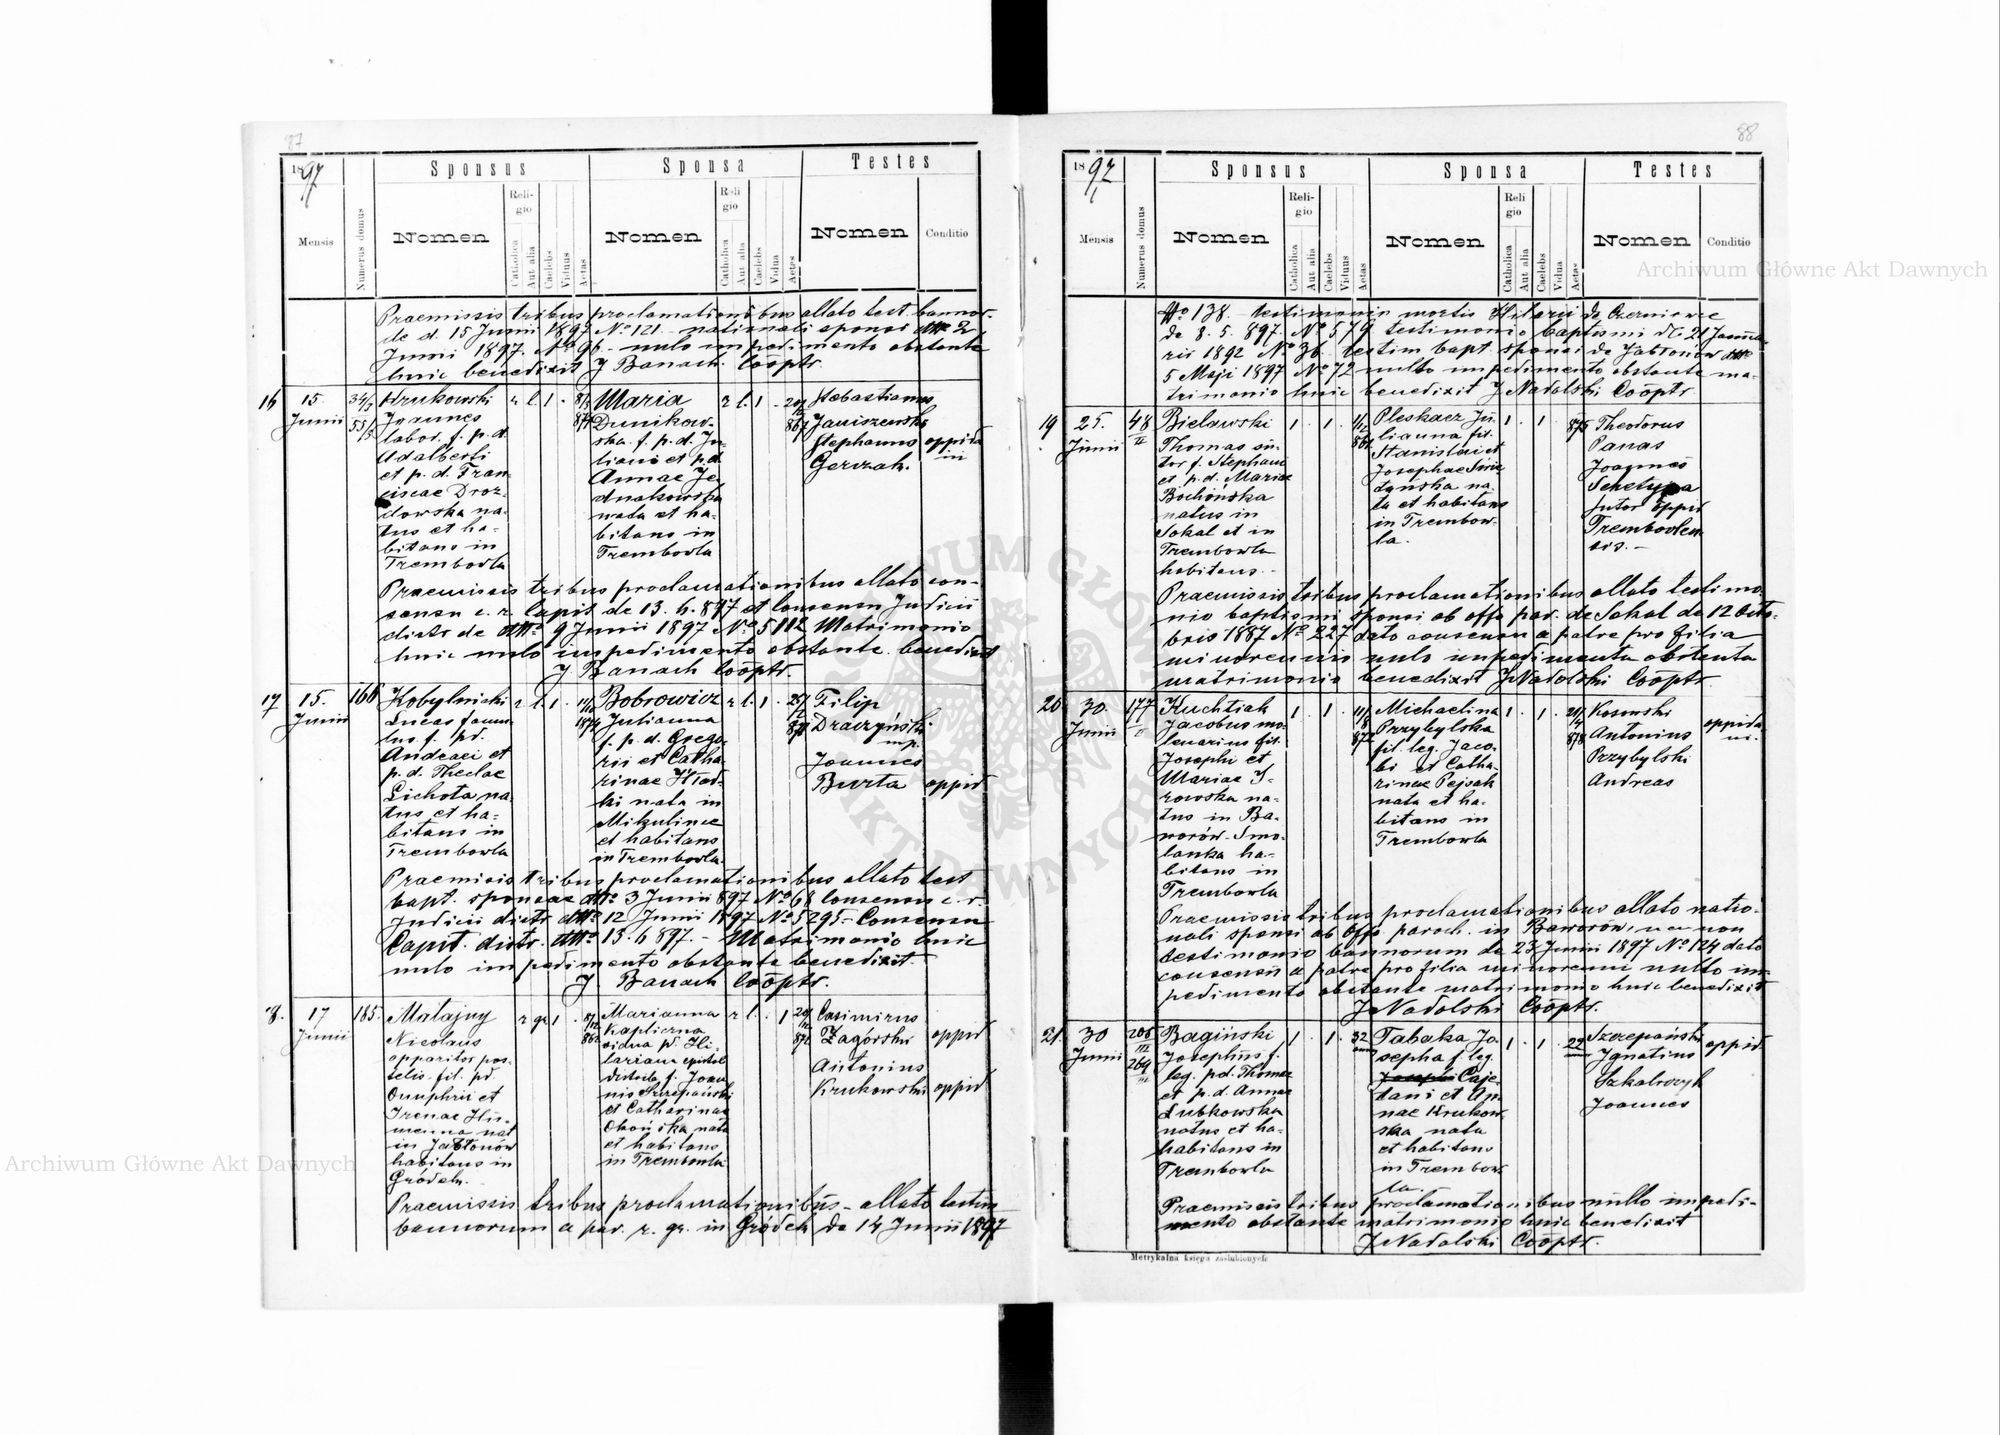 87
1897
Sponsus
Sponsa
Testes
Mensis
Numerus domus
Nomen
Religio
Catholica
Aut alia
Caelebs
Viduus
Aetas
Nomen
Religio
Catholica
Aut alia
Caelebs
Vidua
Aetas
Nomen
Conditio
Praemissis tribus proclamationibus allato test. bannor.
de d. 15 Junii 1897 No 121 - natinali sponsi
Junii 1897. No 96 - nulo impedimento obstante
huic benedixit J Banach. Cooptr.
16
15.
Junii
Krukowski
Joannes
labor. f. p. d.
Adalberti
et p. d. Fran
ciscae Droz-
dowska na-
tus et ha-
bitans in
Trembowla
r l. 1
Maria
Dunikow-
ska f. p. d. Ju
liani et p. d.
Annae Je
dnakowska
nata et ha-
bitans in
Trembowla
r l. 1
Sebastianus
Janiszewski
Stephanus
Gerzah.
oppida
ni
Praemissis tribus proclamationibus allato con-
sensu c. r. Capit de 13. 6. 897 et consensu Judicii
distr de 9 Junii 1897 No 5112 Matrimonio
huic nulo impedimento obstante benedixit
J Banach Cooptr.
17
15.
Junii
166
Kobylnicki
Lucas famu
lus f. pd.
Andreae et
p. d. Theclae
Lichota na-
tus et ha-
bitans in
Trembowla
r l. 1
Bobrowicz
Julianna
f. p. d. Grego-
rii et Catha-
rinae
ki nata in
Mikulince
et habitans
in Trembowla
r l. 1
Filip
Draczyński
mp.
Joannes
Burta oppid
Praemisis tribus proclamationibus allato test
bapt. sponsae 3 Junii 897 No 68 consensu c. r.
Judicii distr 12 Junii 1897 No 5295 - Consensu
Capit. distr. 13. 6 897. - Matrimonio huic
nulo impedimento obstante benedixit.
J. Banach Cooptr.
18.
17
Junii
185.
Matajny
Nicolaus
apparitor pos-
telis. fil. pd.
Onuphrii et
Irenae
nat
in Jabłonów
habitans in
Gródek.
r gr 1
Marianna
Kapliczna
vidua p. Hi-
lariana
f. Joan
nis Szczepański
et Catharinae
nata
et habitans
in Trembowla
r l. 1
Casimirus
Zagórski oppid
Antonius
Krukowski oppid
Praemissis tribus proclamationibus - allato testim
bannorum a par. r. gr. in Gródek de 14 Junii 1897
88
1897
Sponsus
Sponsa
Testes
Mensis
Numerus domus
Nomen
Religio
Catholica
Aut alia
Caelebs
Viduus
Aetas
Nomen
Religio
Catholica
Aut alia
Caelebs
Vidua
Aetas
Nomen
Conditio
No 138. testimonio mortis Hilarii de Czerniowce
de 8. 5. 897. No 579 testimonio baptismi de 21 Janua-
rii 1892 No 36. testim bapt. sponsi de Jabłonów
5 Maji 1897 No 72 nullo impedimento obstante ma-
trimonio huic benedixit J Nadolski Cooptr.
19
25.
Junii
48
II
Bielawski
Thomas su-
tor f. Stephani
et p. d. Mariae
Bochońska
natus in
Sokal et in
Trembowla
habitans. -
1 1
Pleskacz Ju
lianna fil.
Stanislai et
Josephae
na-
ta et habitans
in Trembow-
la.
1 1
875
Theodorus
Panas
Joannes
Seketyra
Sutor oppid
Trembowlen
sis. -
Praemissis tribus proclamationibus allato testimo-
nio baptismi sponsi ab offo par. de Sokal de 12 Octo-
bris 1887 No 227 dato consensu a patre pro filia
minorennis nulo impedimento obstante
matrimonio benedixit J Nadolski Cooptr.
20
30.
Junii
177
II
Kuchtiak
Jacobus mo-
lenarius fil.
Josephi et
Mariae I-
rowska na-
tus in Ba-
worów - Smo-
lanka ha-
bitans in
Trembowla
1 1
Michaelina
Przybylska
fil. leg. Jaco-
bi et Catha-
rinae Pejsak
nata et ha-
bitans in
Trembowla
1 1
Kosowski
Antonius
Przybylski
Andreas
oppida
ni.
Praemissis tribus proclamationibus allato natio-
nali sponsi ab offo paroch. in Baworów, nec non
testimonio bannorum de 23 Junii 1897 No 124, dato
consensu a patre pro filia minorenni nullo im-
pedimento obstante matrimonio huic benedixit
J Nadolski Cooptr.
21.
30
Junii
206
III
264
III
Bagiński
Josephus f.
leg. pd. Thomae
et p. d. Annae
Lubkowska
natus et ha-
habitans in
Trembowla
1 1 32
Tabaka Jo
sepha f. leg.
Caje-
tani et An-
nae Krukow-
ska nata
et habitans
in Trembow-
la.
1 1 22
Szczepański
Ignatius
Szkolnczyk
Joannes
oppid.
Praemissis tribus proclamationibus nullo impedi-
mento obstante matrimonio huic benedixit
J Nadolski Cooptr.
Metrykalna księga zaślubionych
Archiwum Główne Akt Dawnych
Archiwum Główne Akt Dawnych
ARCHIWUM GŁÓWNE AKT DAWNYCH